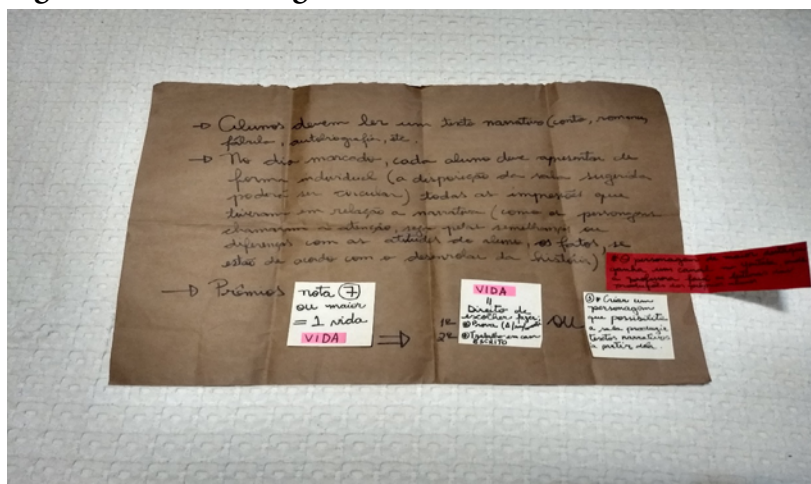 → Alunos devem ler um texto narrativo (conto, romance,
fábula, autobiografia, etc.
→ No dia marcado, cada aluno deve apresentar de
forma individual (a disposição da sala sugerida
poderá ser circular) todas as impressões que
tiveram em relação a narrativa (como os personagens
chamaram a atenção, seja pelas semelhanças ou
diferenças com as atitudes do aluno, os fatos, se
estão de acordo com o desenrolar da história)
→ Prêmios
nota 7
ou maior
= 1 vida
VIDA
⇒
VIDA
Direito de
escolher fazer:
1ª Prova
2ª Trabalho em casa
ESCRITO
OU
③ Criar um
personagem
que possibilite
a sala produzir
textos narrativos
a partir
O personagem